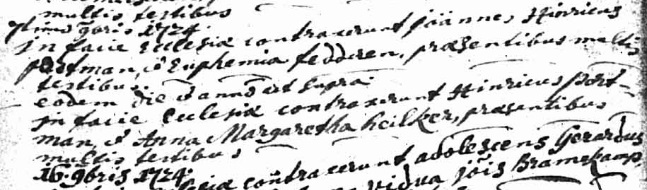 multis testibus
9bris 1724
in facie Ecclesiæ contraxerunt Joannes Hinricus
Portman, & Euphemia fedderen, præsentibus multis
testibus.
eodem die & anno ut supra
in facie Ecclesiæ contraxerunt Hinricus Port-
man, & Anna Margaretha Heilker, præsentibus
multis testibus
16. 9bris 1724.
contraxerunt adolescens Gerardus
vidua Jõis Bramkamp